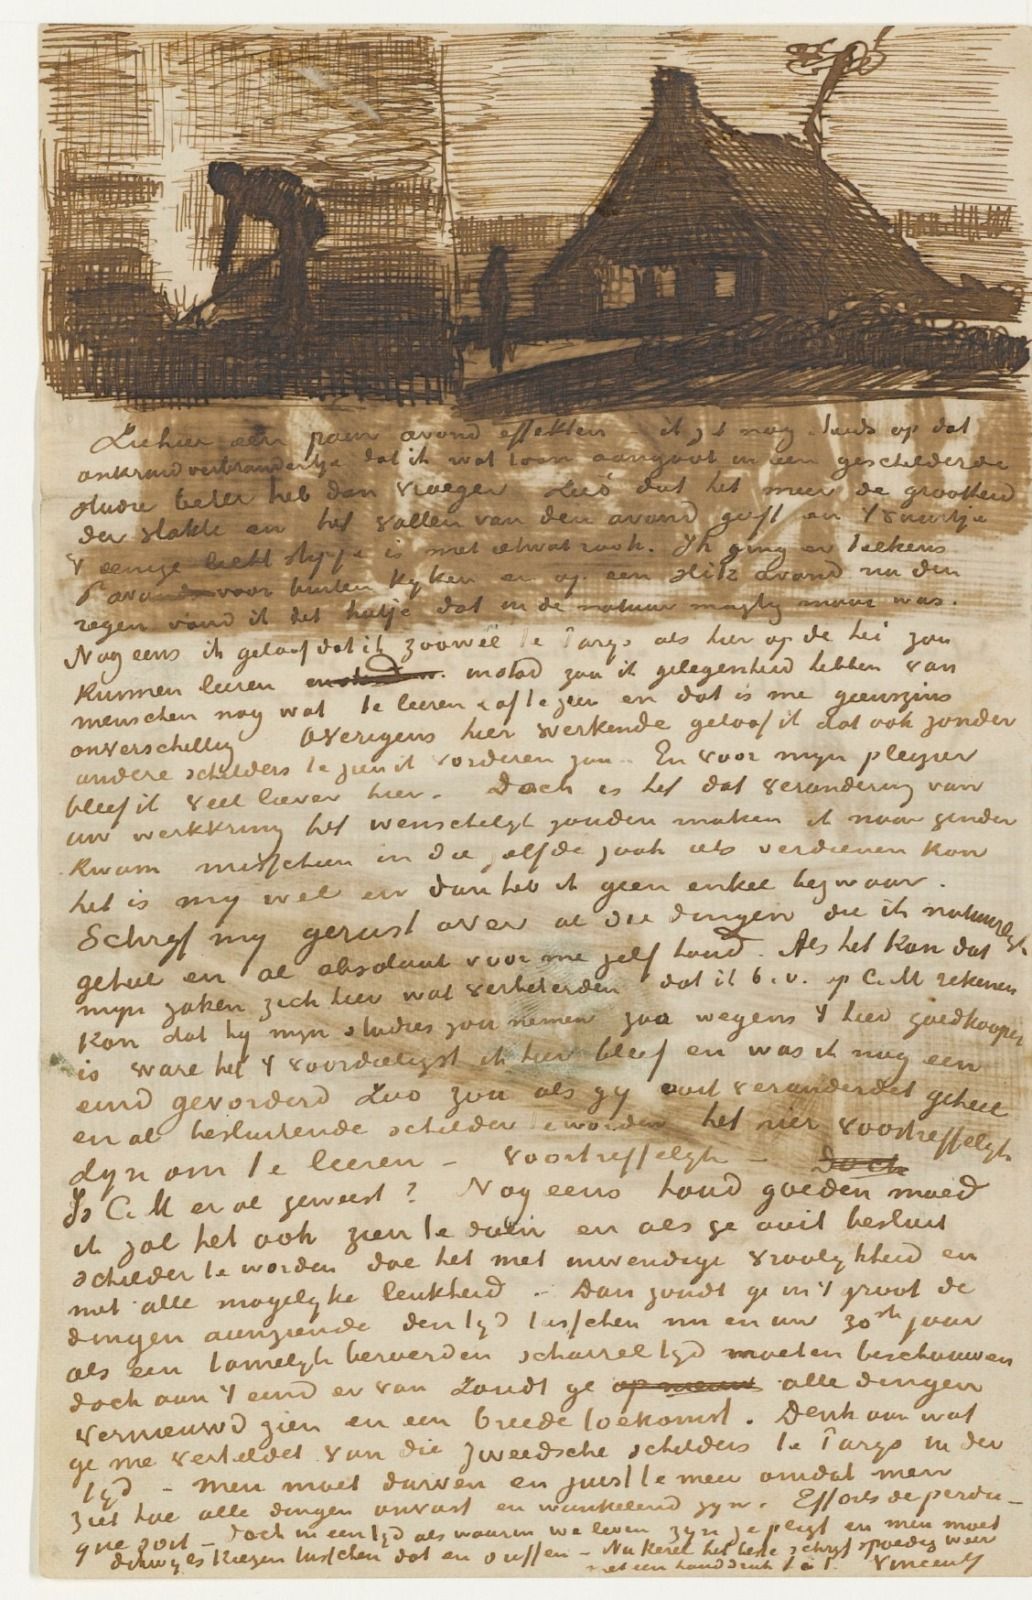 Ziehier een paar avond effekten – ik zit nog steeds op dat
onkruidverbrandertje dat ik wat toon aangaat in een geschilderde
studie beter heb dan vroeger Zoo dat het meer de grootheid
der vlakte en het vallen van den avond geeft en 't vuurtje
't eenige licht stipje is met ietwat rook. Ik ging er telkens
's avonds voor buiten kijken en op een avond na den
regen vond ik dit hutje dat in de natuur magtig mooi was.
Nog eens ik geloof dat ik zoowel te Parys als hier op de hei zou
kunnen leeren instad zou ik gelegenheid hebben van
menschen nog wat te leeren & af te zien en dat is me geenszins
onverschillig Overigens hier werkende geloof ik dat ook zonder
andere schilders te zien ik vorderen zou. En voor mijn plezier
bleef ik veel liever hier. Doch is het dat verandering van
uw werkkring het wenschelijk zouden maken ik naar ginder
kwam misschien in die zelfde zaak iets verdienen kon
het is mij wel en dan heb ik geen enkel bezwaar.
Schrijf mij gerust over al die dingen die ik natuurlijk
geheel en al absoluut voor me zelf houd. Als het kon dat
mijn zaken zich hier wat verbeterden dat ik b.v. op C.M rekenen
kon dat hij mijn studies zou nemen zou wegens 't hier goedkooper
is ware het 't voordeeligst ik hier bleef en was ik nog een
eind gevorderd Zoo zou als gij ooit veranderdet geheel
en al besluitende schilder te worden het hier voortreffelijk
zijn om te leeren – voortreffelijk – doch
Is C.M er al geweest? Nog eens houd goeden moed
ik zal het ook zien te doen en als ge ooit besluit
schilder te worden doe het met inwendige vroolijkheid en
met alle mogelijke leukheid – Dan zoudt ge in 't groot de
dingen aanziende den tijd tusschen nu en uw 30ste jaar
als een tamelijk beroerden scharreltijd moeten beschouwen
doch aan 't eind er van Zoudt ge op nieuw alle dingen
vernieuwd zien en een breede toekomst. Denk aan wat
ge me verteldet van die zweedsche schilders te Parys in der
tijd – Men moet durven en juist te meer omdat men
ziet hoe alle dingen onvast en wankelend zijn. Efforts de perdu–
que soit – doch in een tijd als waarin we leven zijn ze pligt en men moet
kiezen tusschen dat en suffen – Nu kerel het beste schrijf spoedig weer
met een handdruk t à t. Vincent